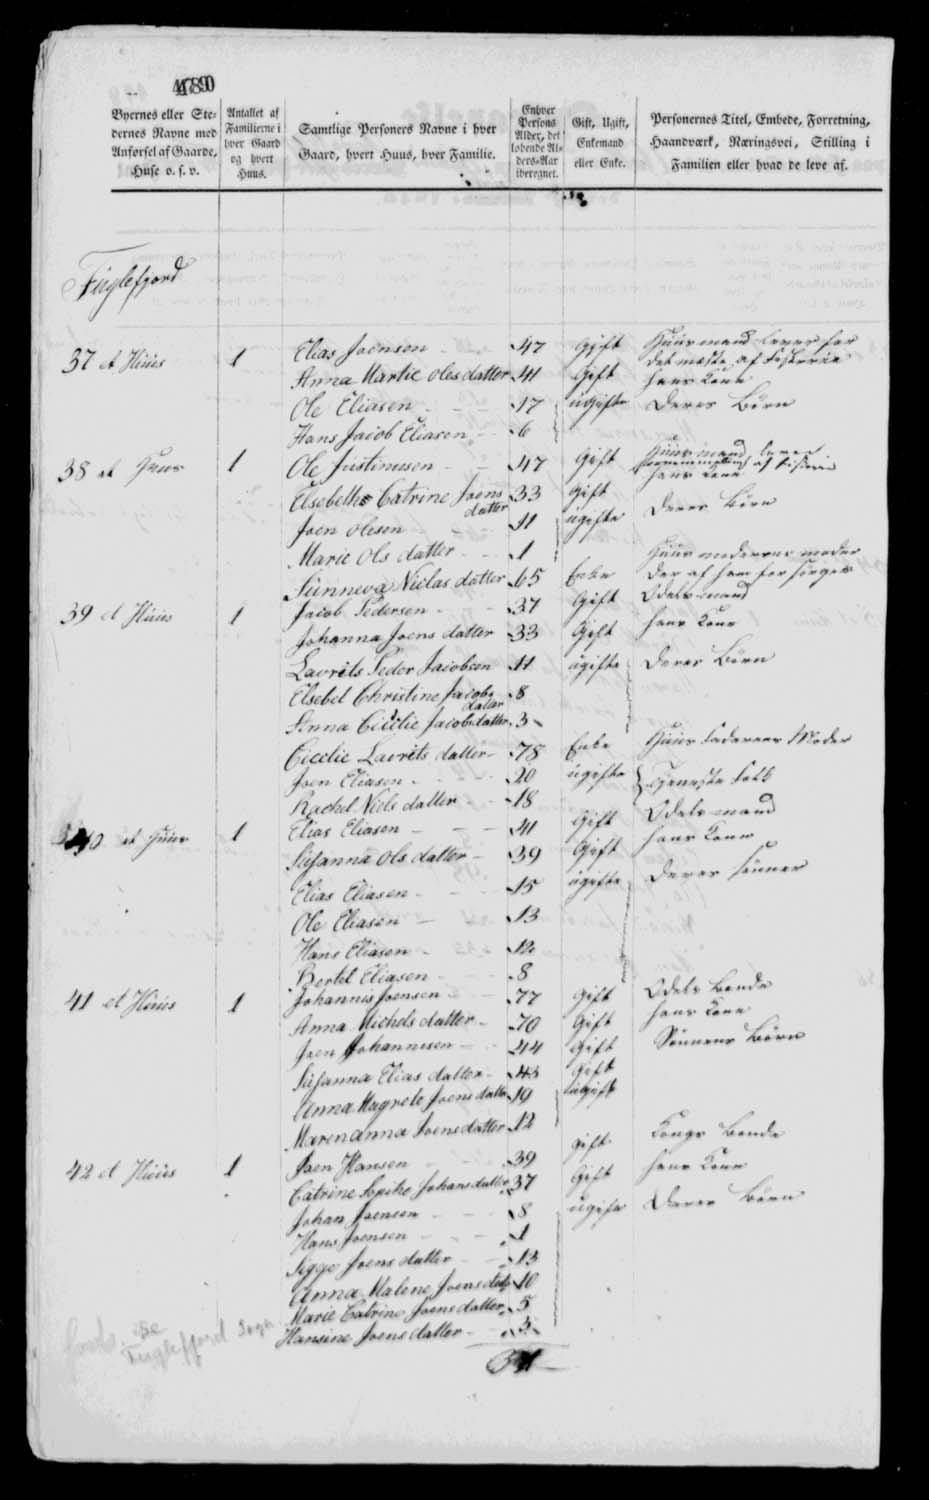 Byernes eller Ste-
dernes Navne med
Anførsel af Gaarde,
Huse o. s. v.
Antallet af
Familierne i
hver Gaard
og hvert
Huus.
Samtlige Personers Navne i hver
Gaard, hvert Huus, hver Familie.
Enhver
Persons
Alder, det
løbende Al-
ders-Aar
iberegnet.
Gift, Ugift,
Enkemand
eller Enke.
Personernes Titel, Embede, Forretning,
Haandværk, Næringsvei, Stilling i
Familien eller hvad de leve af.
Fuglefjord
37 et Huus 1 Elias Joensen 47 Gift Huusmand lever for
det meste af Fiskerie
Anna Marie Olesdatter 41 Gift hans Kone
Ole Eliasen 17 ugifte Deres Børn
Hans Jacob Eliasen 6
38 et Huus 1 Ole Justinusen 47 Gift Huusmand lever
af Fiskerie
Elsebeth Catrine Joens
datter 33 Gift hans Kone
Joen Olesen 11 ugifte Deres Børn
Marie Ols datter 1
Sunneva Niclas datter 65 Enke Huusmoderens moder
der af ham forsørges
39 et Huus 1 Jacob Pedersen 37 Gift Odelsmand
Johanna Joens datter 33 Gift hans Kone
Lavrits Peder Jacobsen 11 ugifte Deres Børn
Elsebel Christine Jacobs
datter 8
Anna Cicilie Jacobsdatter 3
Cicilie Lavrits datter 78 Enke Huusfaderens Moder
Joen Eliasen 20 ugifte Tjenestefolk
Rachel Niels datter 18
40 et Huus 1 Elias Eliasen 41 Gift Odelsmand
Susanna Ols datter 39 Gift hans Kone
Elias Eliasen 15 ugifte Deres sønner
Ole Eliasen 13
Hans Eliasen 12
Bertel Eliasen 8
41 et Huus 1 Johannis Joensen 77 Gift Odels Bonde
Anna Michels datter 70 Gift hans Kone
Joen Johannesen 44 Gift Sønnens Børn
Susanna Elias datter 43 Gift
Anna Magrete Joensdatter 19 ugift
Maren anna Joensdatter 12
42 et Huus 1 Joen Hansen 39 gift Kongs Bonde
Catrine Sophie Johansdatter 37 Gift hans Kone
Johan Joensen 8 ugifte Deres Børn
Hans Joensen 1
Sigge Joens datter 13
Anna Malene Joensdatr 10
Marie Catrine Joensdatter 5
Hansine Joens datter 3
Fuglefjord Sogn